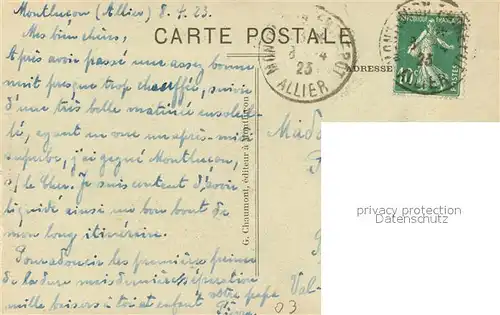 Montluçon (Allier) 8.4.23.
Mes bien chères,
CARTE POSTALE
ADRESSE
ALLIER
8 4
23
10
POSTES
Après avoir passé une assez bonne
nuit presque trop chauffée, suivie
d'une très belle matinée ensoleil-
lée, ayant eu une après-midi
superbe, j'ai gagné Montluçon,
s/ le Cher. Je suis content d'avoir
liquidé ainsi un bon bout de
mon long itinéraire.
Pour adoucir les première peines
de la dure mais dernière séparation
mille baisers à toi et enfant votre papa
Pierre
G. Chaumont, éditeur à Montluçon
Mada
Val-
03
privacy protection
Datenschutz